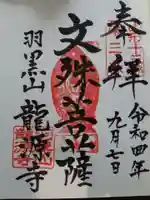 奉拝
令和四年
九月七日
文殊菩薩
羽黒山
龍源寺